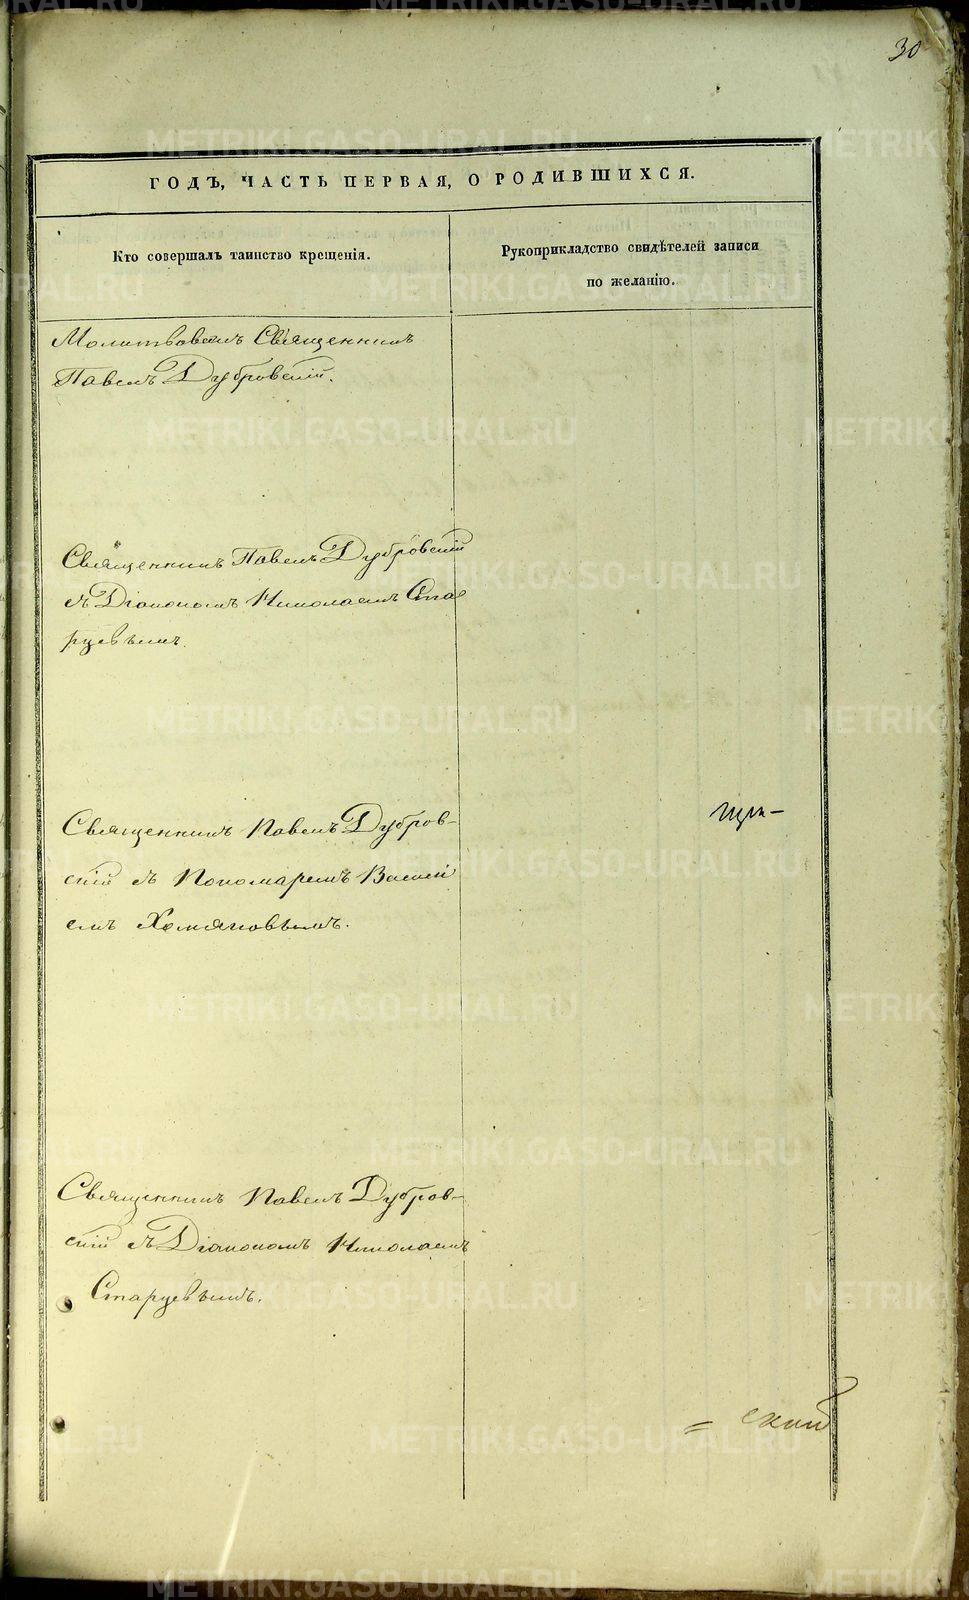 30
ГОДЪ, ЧАСТЬ ПЕРВАЯ, О РОДИВШИХСЯ.
Кто совершалъ таинство крещенія.
Рукоприкладство свидѣтелей записи
по желанію.
Молитвовалъ Священникъ
Павелъ Дубровскій.
Священникъ Павелъ Дубровскій
съ Діакономъ Николаемъ Стар
рцевымъ.
Священникъ Павелъ Дубров-
скій съ Пономаремъ Васили
емъ Хомяковымъ.
Священникъ Павелъ Дубров-
скій съ Діакономъ Николаемъ
Старцевымъ.
= скій
METRIKI.GASO-URAL.RU